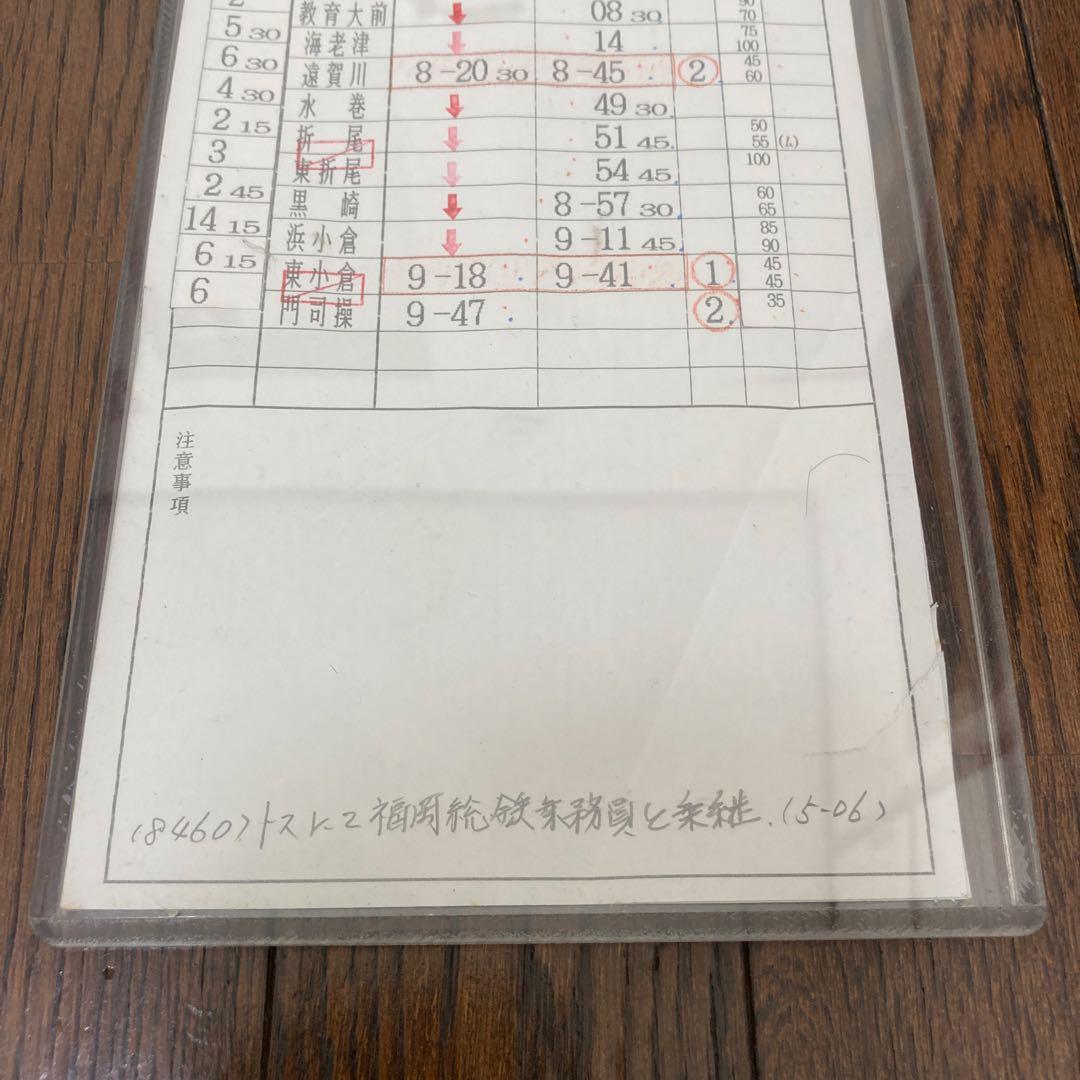 教育大前 08 30. 70
5 30 海老津 14 75 100
6 30 遠賀川 8-20 30 8-45 ② 45 60
4 30 水巻 49 30.
2 15 折尾 51 45. 50 55 (ム)
3 東折尾 54 45. 100
2 45 黒崎 8-57 30. 60 65
14 15 浜小倉 9-11 45. 85 90
6 15 東小倉 9-18 9-41 ① 45 45
6 門司操 9-47 ② 35
注意事項
(8460)トスにて福岡総鉄乗務員と乗継.(5-06)